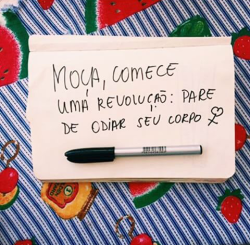 MOÇA, COMECE
UMA REVOLUÇÃO: PARE
DE ODIAR SEU CORPO ♀